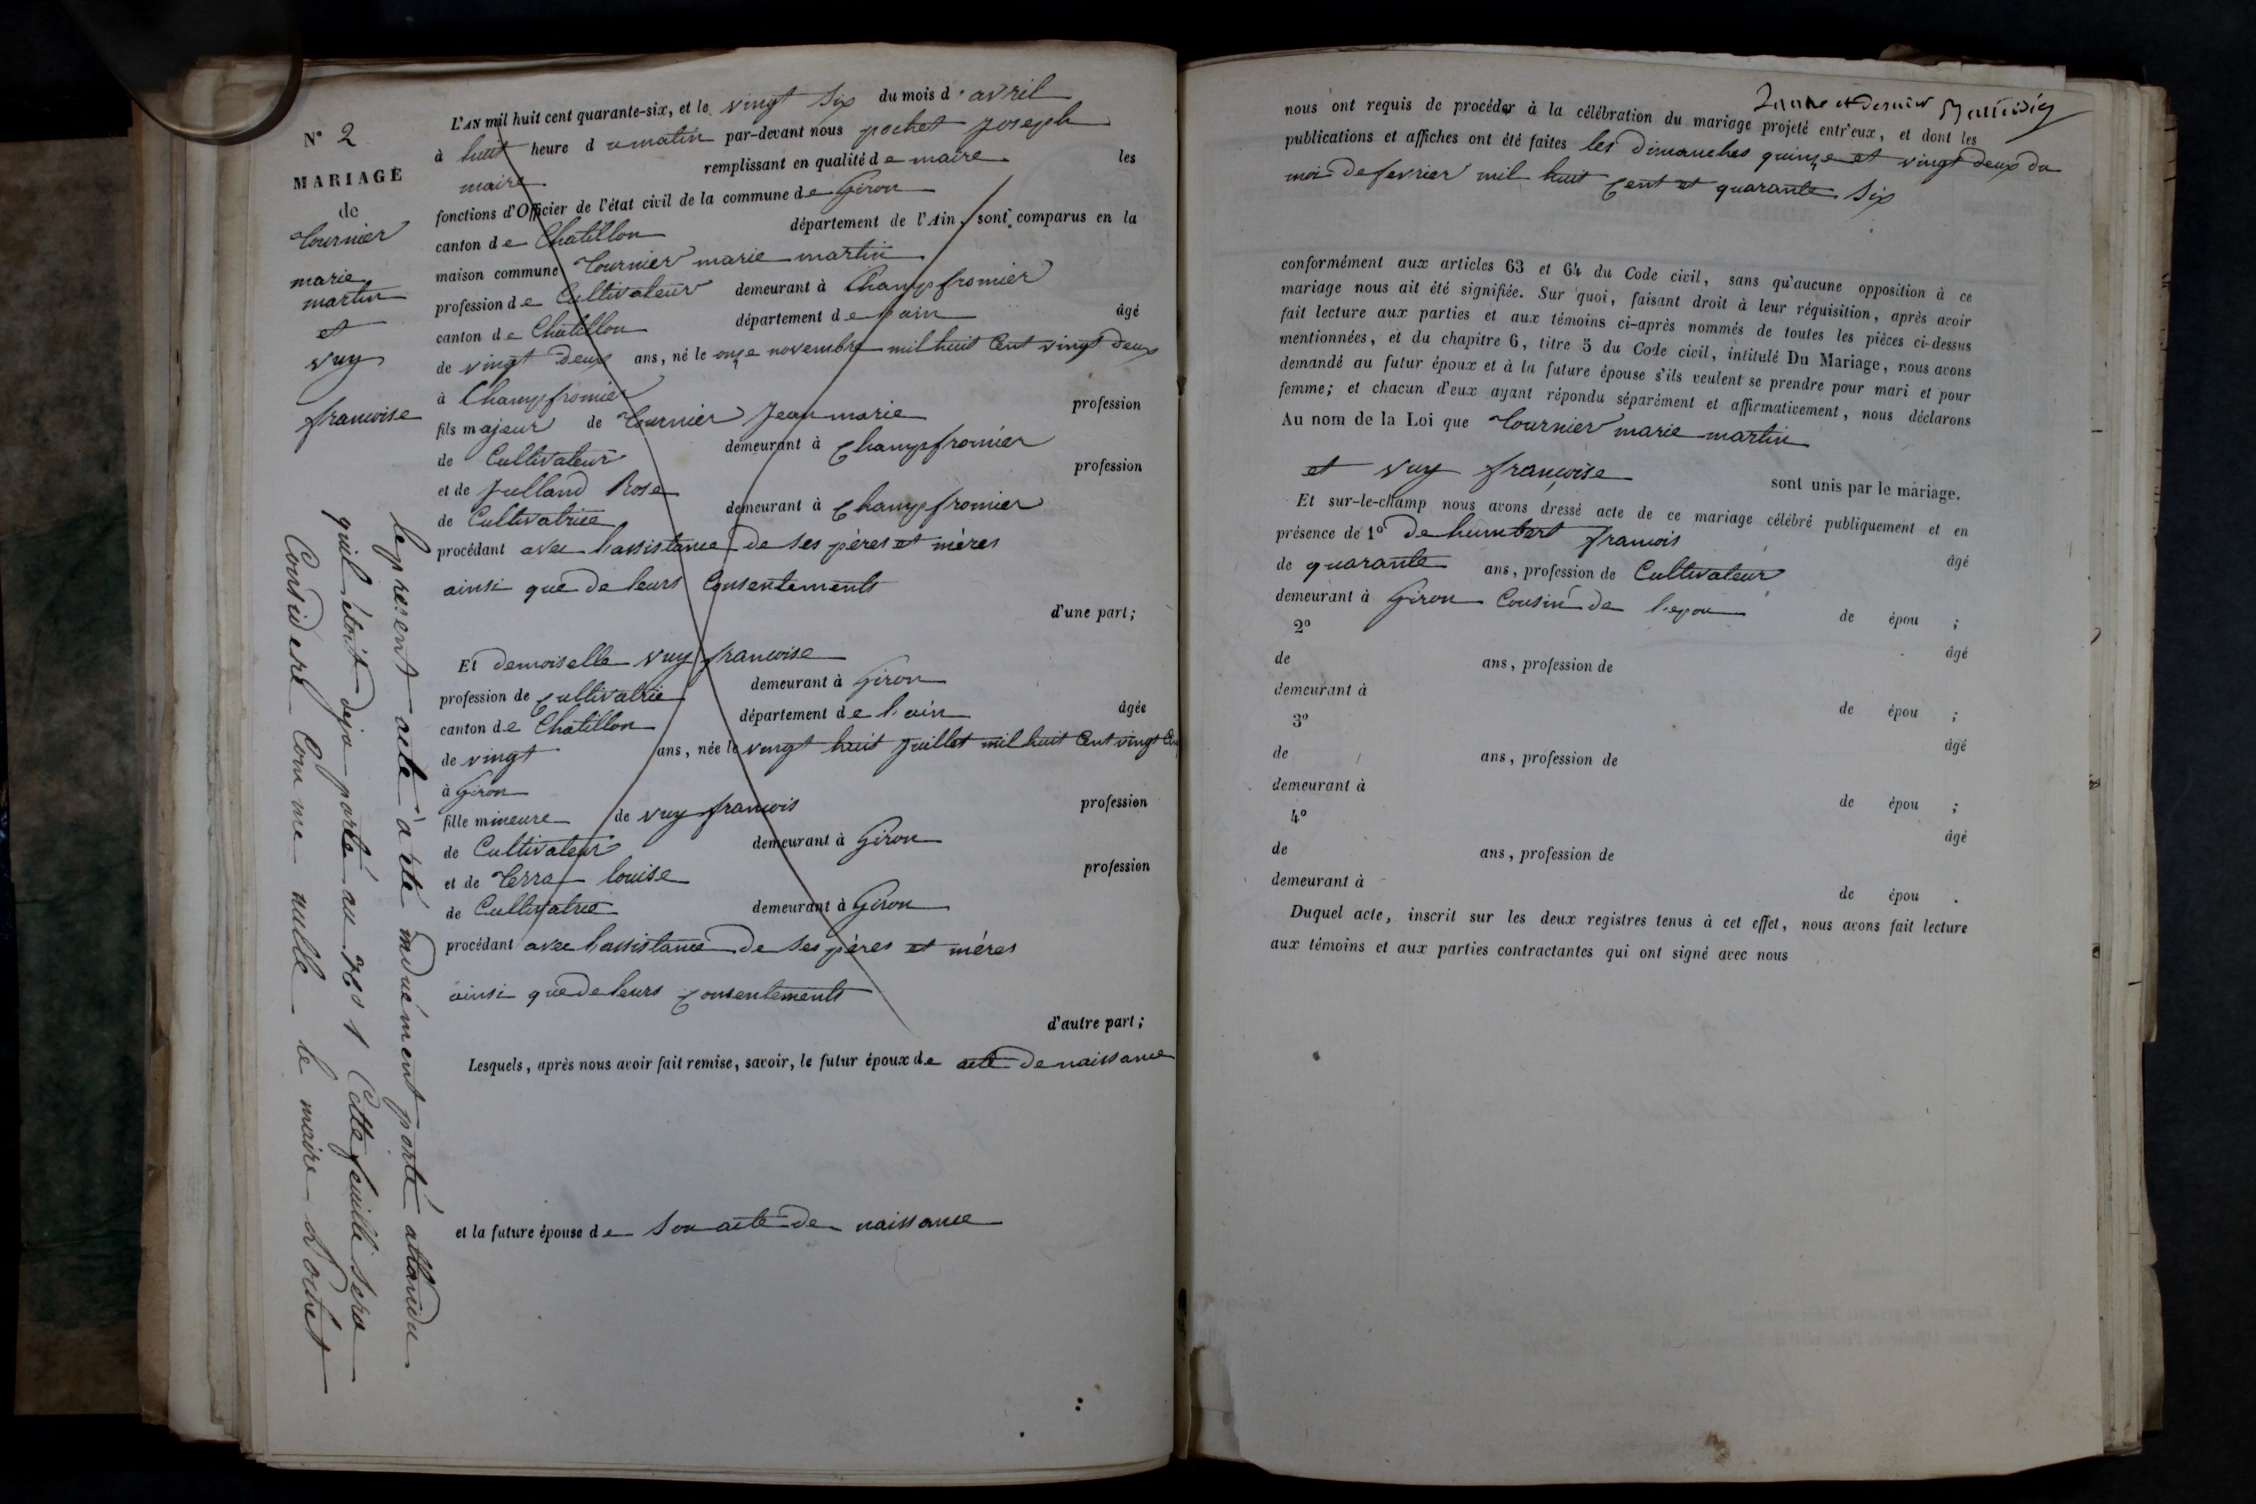 N° 2
MARIAGE
de
Tournier
marie
martin
et
vuy
francoise
L'AN mil huit cent quarante-six, et le vingt six du mois d'avril
à huit heure du matin par-devant nous pochet Joseph
maire remplissant en qualité de maire les
fonctions d'Officier de l'état civil de la commune de Giron
canton de Chatillon département de l'Ain, sont comparus en la
maison commune Tournier marie martin
profession de Cultivateur demeurant à Champfromier
canton de Chatillon département de l'ain âgé
de vingt deux ans, né le onze novembre mil huit Cent vingt deux
à Champfromier
fils majeur de Tournier Jean marie profession
de Cultivateur demeurant à Champfromier
et de Julland Rose profession
de Cultivatrice demeurant à Champfromier
procédant avec l'assistance de ses pères et mères
ainsi que de leurs Consentements
d'une part;
Et demoiselle vuy francoise
profession de Cultivatrie demeurant à Giron
canton de Chatillon département de l'ain âgée
de vingt ans, née le vingt huit Juillet mil huit Cent vingt
à Giron
fille mineure de vuy francois profession
de Cultivateur demeurant à Giron
et de Terra louise profession
de Cultivatrice demeurant à Giron
procédant avec l'assistance de ses pères et mères
ainsi que de leurs Consentements
d'autre part;
Lesquels, après nous avoir fait remise, savoir, le futur époux de acte de naissance
et la future épouse de son acte de naissance
le present acte à été induément porté attandu
quil étoit deja porté au No 1 Cette feuille sera
Considere Comme nulle le maire Pochet
et dernier
nous ont requis de procéder à la célébration du mariage projeté entr'eux, et dont les
publications et affiches ont été faites les dimanches quinze et vingt deux du
moi de fevrier mil huit Cent et quarante six
conformément aux articles 63 et 64 du Code civil, sans qu'aucune opposition à ce
mariage nous ait été signifiée. Sur quoi, faisant droit à leur réquisition, après avoir
fait lecture aux parties et aux témoins ci-après nommés de toutes les pièces ci-dessus
mentionnées, et du chapitre 6, titre 5 du Code civil, intitulé Du Mariage, nous avons
demandé au futur époux et à la future épouse s'ils veulent se prendre pour mari et pour
femme; et chacun d'eux ayant répondu séparément et affirmativement, nous déclarons
Au nom de la Loi que Tournier marie martin
et vuy françoise sont unis par le mariage.
Et sur-le-champ nous avons dressé acte de ce mariage célébré publiquement et en
présence de 1° de humbert francois âgé
de quarante ans, profession de Cultivateur
demeurant à Giron Cousin de l'epou de épou ;
2° âgé
de ans, profession de
demeurant à de épou ;
3° âgé
de ans, profession de
demeurant à de épou ;
4° âgé
de ans, profession de
demeurant à de épou .
Duquel acte, inscrit sur les deux registres tenus à cet effet, nous avons fait lecture
aux témoins et aux parties contractantes qui ont signé avec nous